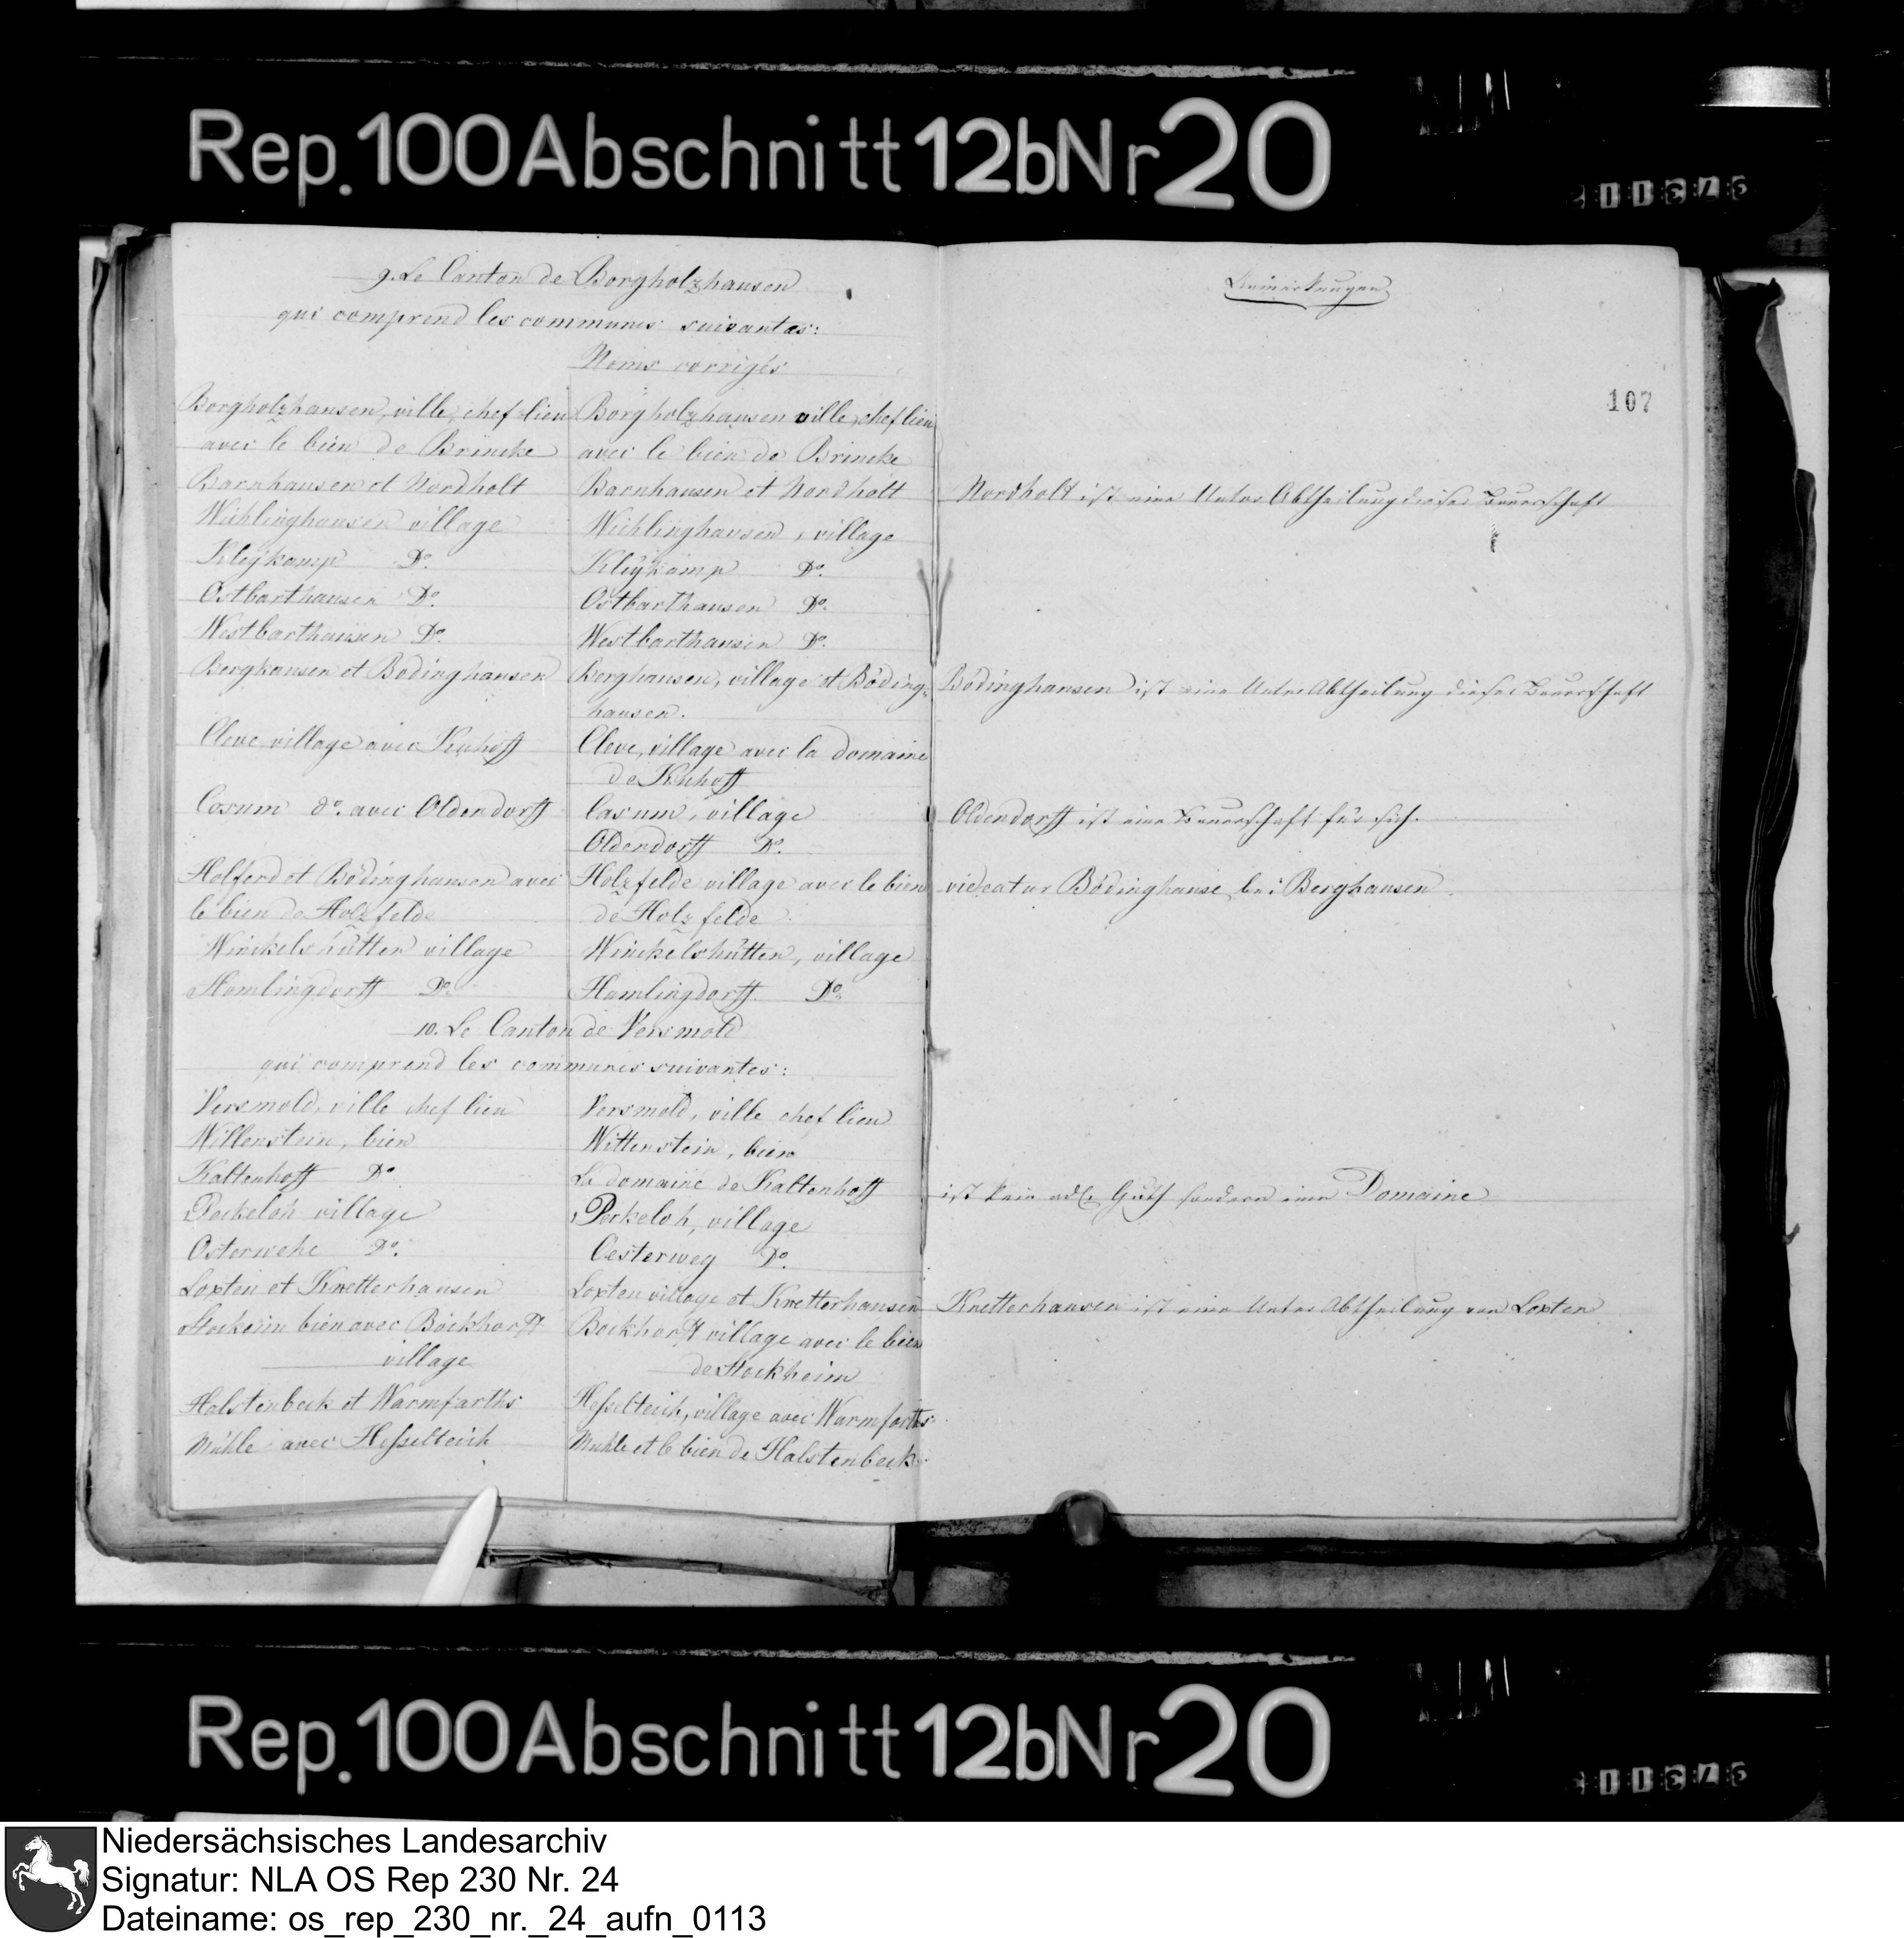 Rep. 100 Abschnitt 12b Nr 20
9. Le Canton de Borgholzhausen
qui comprend les communes suivantes:
Noms corrigés
Borgholzhausen, ville, chef-lieu
avec le bien de Brincke
Barnhausen et Nordholt
Wichlinghausen village
Kleykamp Do.
Ostbarthausen Do.
Westbarthausen Do.
Berghausen et Bodinghausen
Cleve, village avec Kuhoff
Cosum do. avec Oldendorff
Holferd et Bödinghausen avec
le bien de Holzfelde
Winckelshütten village
Hamlingdorff Do.
Borgholzhausen ville, chef lieu
avec le bien de Brincke
Barnhausen et Nordholt
Wichlinghausen, village
Kleykamp Do.
Ostbarthausen Do.
Westbarthausen Do.
Berghausen, village et Böding-
hausen.
Cleve, village avec la domaine
de Kuhoff
Casum, village
Oldendorff Do.
Holzfelde village avec le bien
de Holzfelde
Winckelshütten, village
Hamlingdorff Do.
10. Le Canton de Versmold
qui comprend les communes suivantes:
Versmold, ville chef lieu
Willenstein, bien
Kaltenhoff Do
Peckeloh village
Osterwehe Do.
Loxten et Knetterhausen
Stockeim bien avec Bockhorst
village
Halstenbeck et Warmfarths
Mühle avec Hesselteich
Versmold, ville chef lieu
Wittenstein, bien
Le domaine de Kaltenhoff
Peckeloh, village
Oesterweg Do.
Loxten village et Knetterhausen
Bockhorst village avec le bien
de Stockheim
Hesselteich, village avec Warmfarths
Mühle et le bien de Halstenbeck
Bemerkungen
107
Nordholt ist eine Unter Abtheilung dieser Bauerschaft
Bödinghausen ist eine Unter Abtheilung dieser Bauerschaft
Oldendorff ist eine Bauerschaft für sich.
videatur Bödinghause bei Berghausen
ist kein adl. Guth sondern eine Domaine
Knetterhausen ist eine Unter Abtheilung von Loxten
Rep. 100 Abschnitt 12b Nr 20
Niedersächsisches Landesarchiv
Signatur: NLA OS Rep 230 Nr. 24
Dateiname: os_rep_230_nr._24_aufn_0113